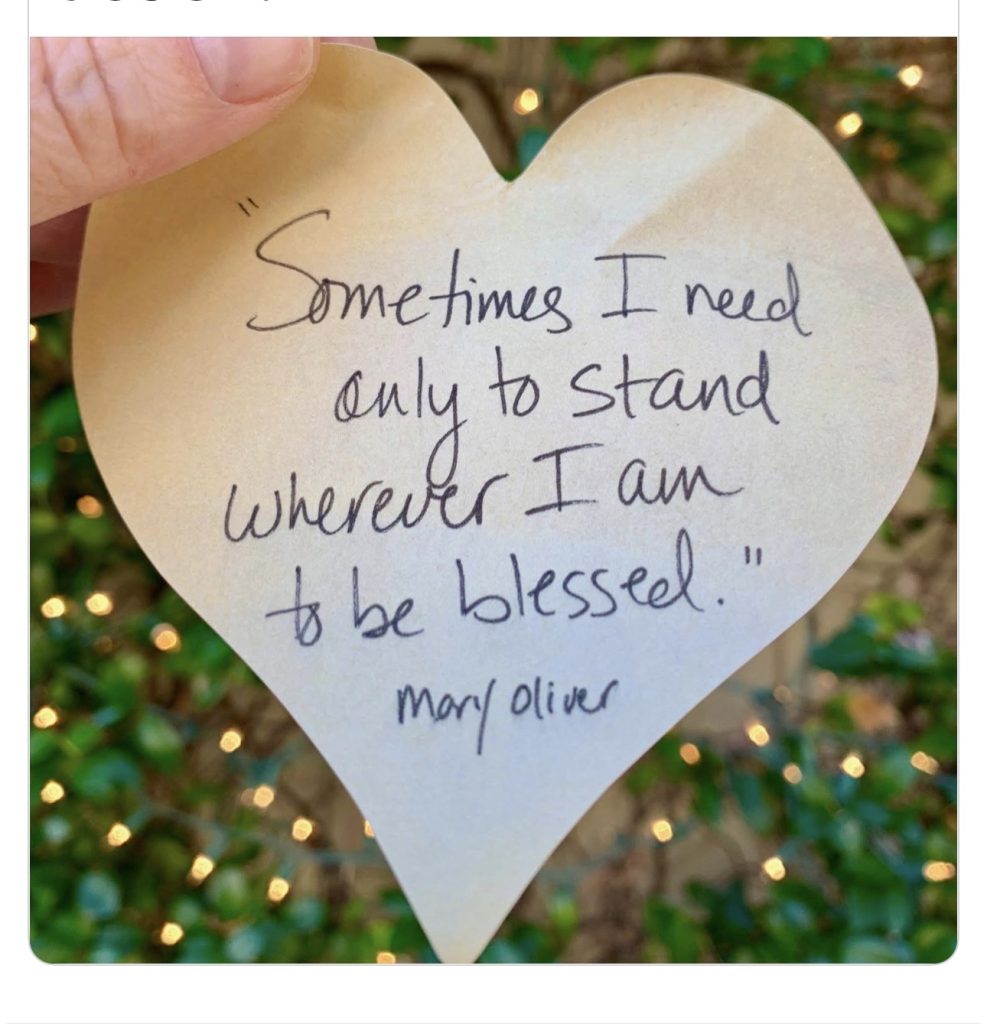 "Sometimes I need
only to stand
wherever I am
to be blessed."
Mary Oliver